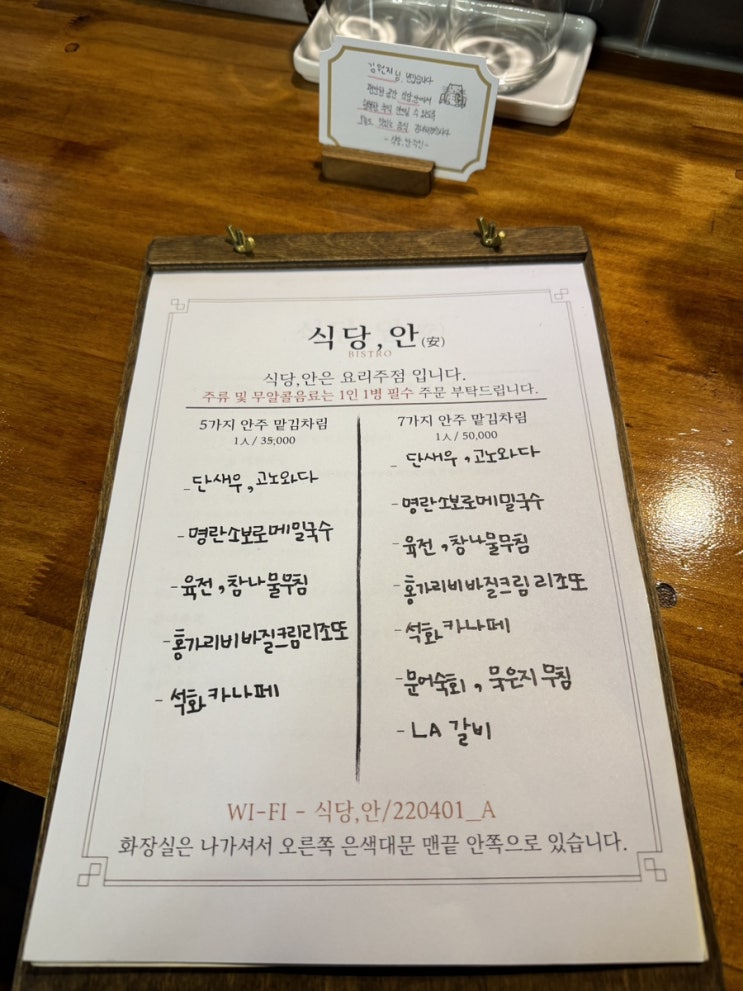 김원지님, 반갑습니다
편안한 공간 식당,안에서
오늘도 맛있는 음식
- 식당,안 주인 -
식당,안(安)
BISTRO
식당,안은 요리주점 입니다.
주류 및 무알콜음료는 1인 1병 필수 주문 부탁드립니다.
5가지 안주 맡김차림
1人 / 35,000
- 단새우, 고노와다
- 명란소보로메밀국수
- 육전, 참나물무침
- 홍가리비바질크림리조또
- 석화카나페
7가지 안주 맡김차림
1人 / 50,000
- 단새우, 고노와다
- 명란소보로메밀국수
- 육전, 참나물무침
- 홍가리비바질크림리조또
- 석화카나페
- 문어숙회, 묵은지무침
- LA 갈비
WI-FI - 식당,안/220401_A
화장실은 나가셔서 오른쪽 은색대문 맨끝 안쪽으로 있습니다.